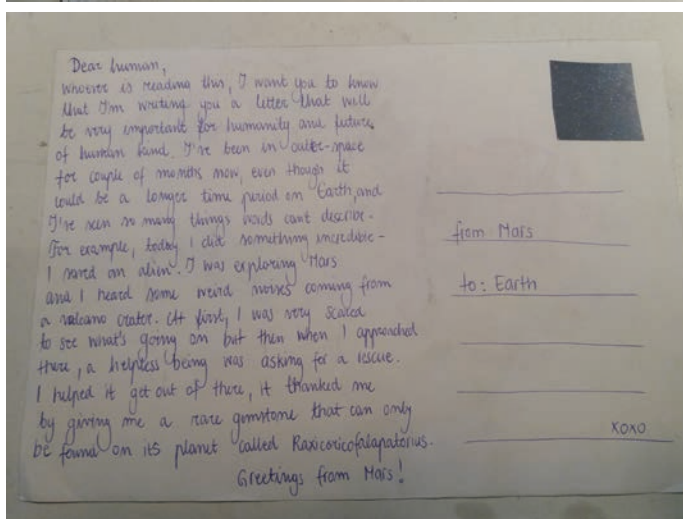 Dear human,
whoever is reading this, I want you to know
that I'm writing you a letter that will
be very important for humanity and future
of human kind. I've been in outer-space
for couple of months now, even though it
could be a longer time period on Earth, and
I've seen so many things words cant describe.
For example, today I did something incredible-
I saved an alien. I was exploring Mars
and I heard some weird noises coming from
a volcano crator. At first, I was very scared
to see what's going on but then when I approached
there, a helpless being was asking for a rescue.
I helped it get out of there, it thanked me
by giving me a rare gemstone that can only
be found on its planet called Raxicoricofalapatorius.
Greetings from Mars!
from Mars
to: Earth
xoxo